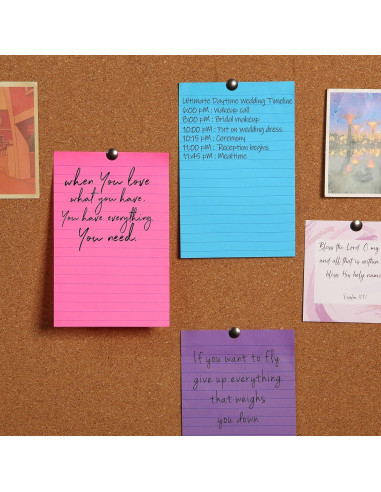 when You love
what you have.
You have everything
You need.
Ultimate Daytime Wedding Timeline
6:00 pm : Wakeup call
8:00 pm : Bridal makeup
10:00 pm : Put on wedding dress
10:15 pm : Ceremony
11:00 pm : Reception begins
11:45 pm : Mealtime
Bless the Lord O my
and all that is within
bless His holy name
If you want to fly
give up everything
that weighs
you down